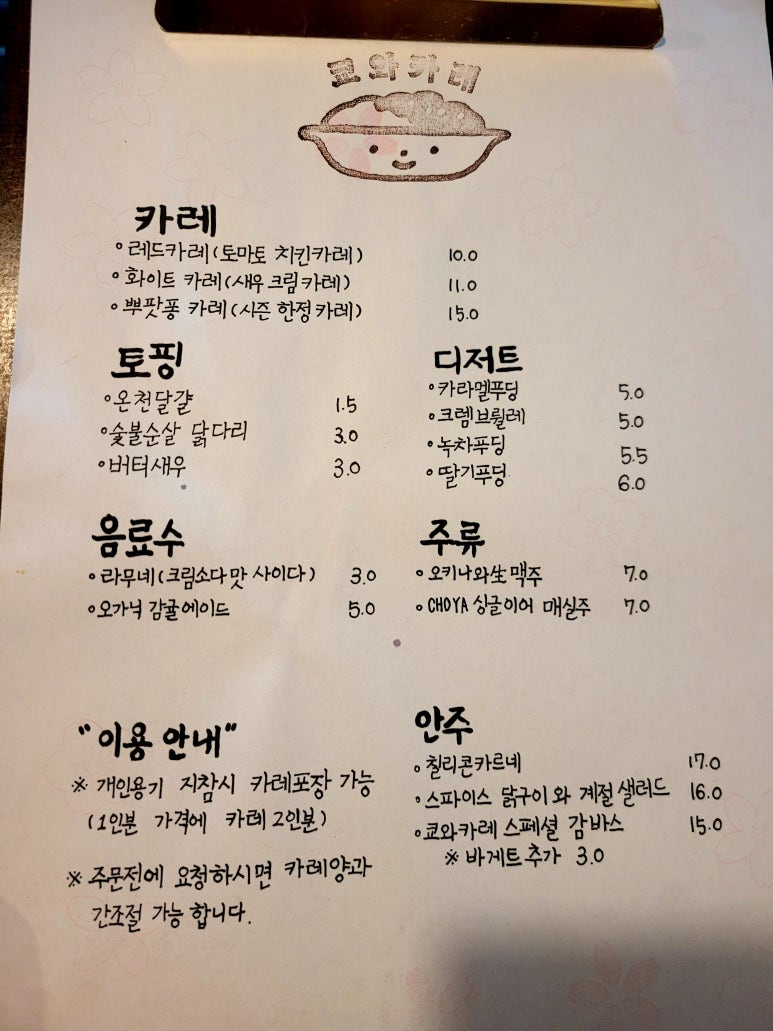 쿄와카레
카레
◦ 레드카레(토마토 치킨카레) 10.0
◦ 화이트 카레(새우크림카레) 11.0
◦ 뿌팟퐁 카레(시즌 한정카레) 15.0
토핑
◦ 온천달걀 1.5
◦ 숯불순살 닭다리 3.0
◦ 버터새우 3.0
디저트
◦ 카라멜푸딩 5.0
◦ 크렘브륄레 5.0
◦ 녹차푸딩 5.5
◦ 딸기푸딩 6.0
음료수
◦ 라무네(크림소다맛 사이다) 3.0
◦ 오가닉 감귤에이드 5.0
주류
◦ 오키나와生맥주 7.0
◦ CHOYA 싱글이어 매실주 7.0
"이용 안내"
※ 개인용기 지참시 카레포장 가능
(1인분 가격에 카레 2인분)
※ 주문전에 요청하시면 카레양과
간조절 가능합니다.
안주
◦ 칠리콘카르네 17.0
◦ 스파이스 닭구이와 계절샐러드 16.0
◦ 쿄와카레 스페셜 감바스 15.0
※ 바게트추가 3.0